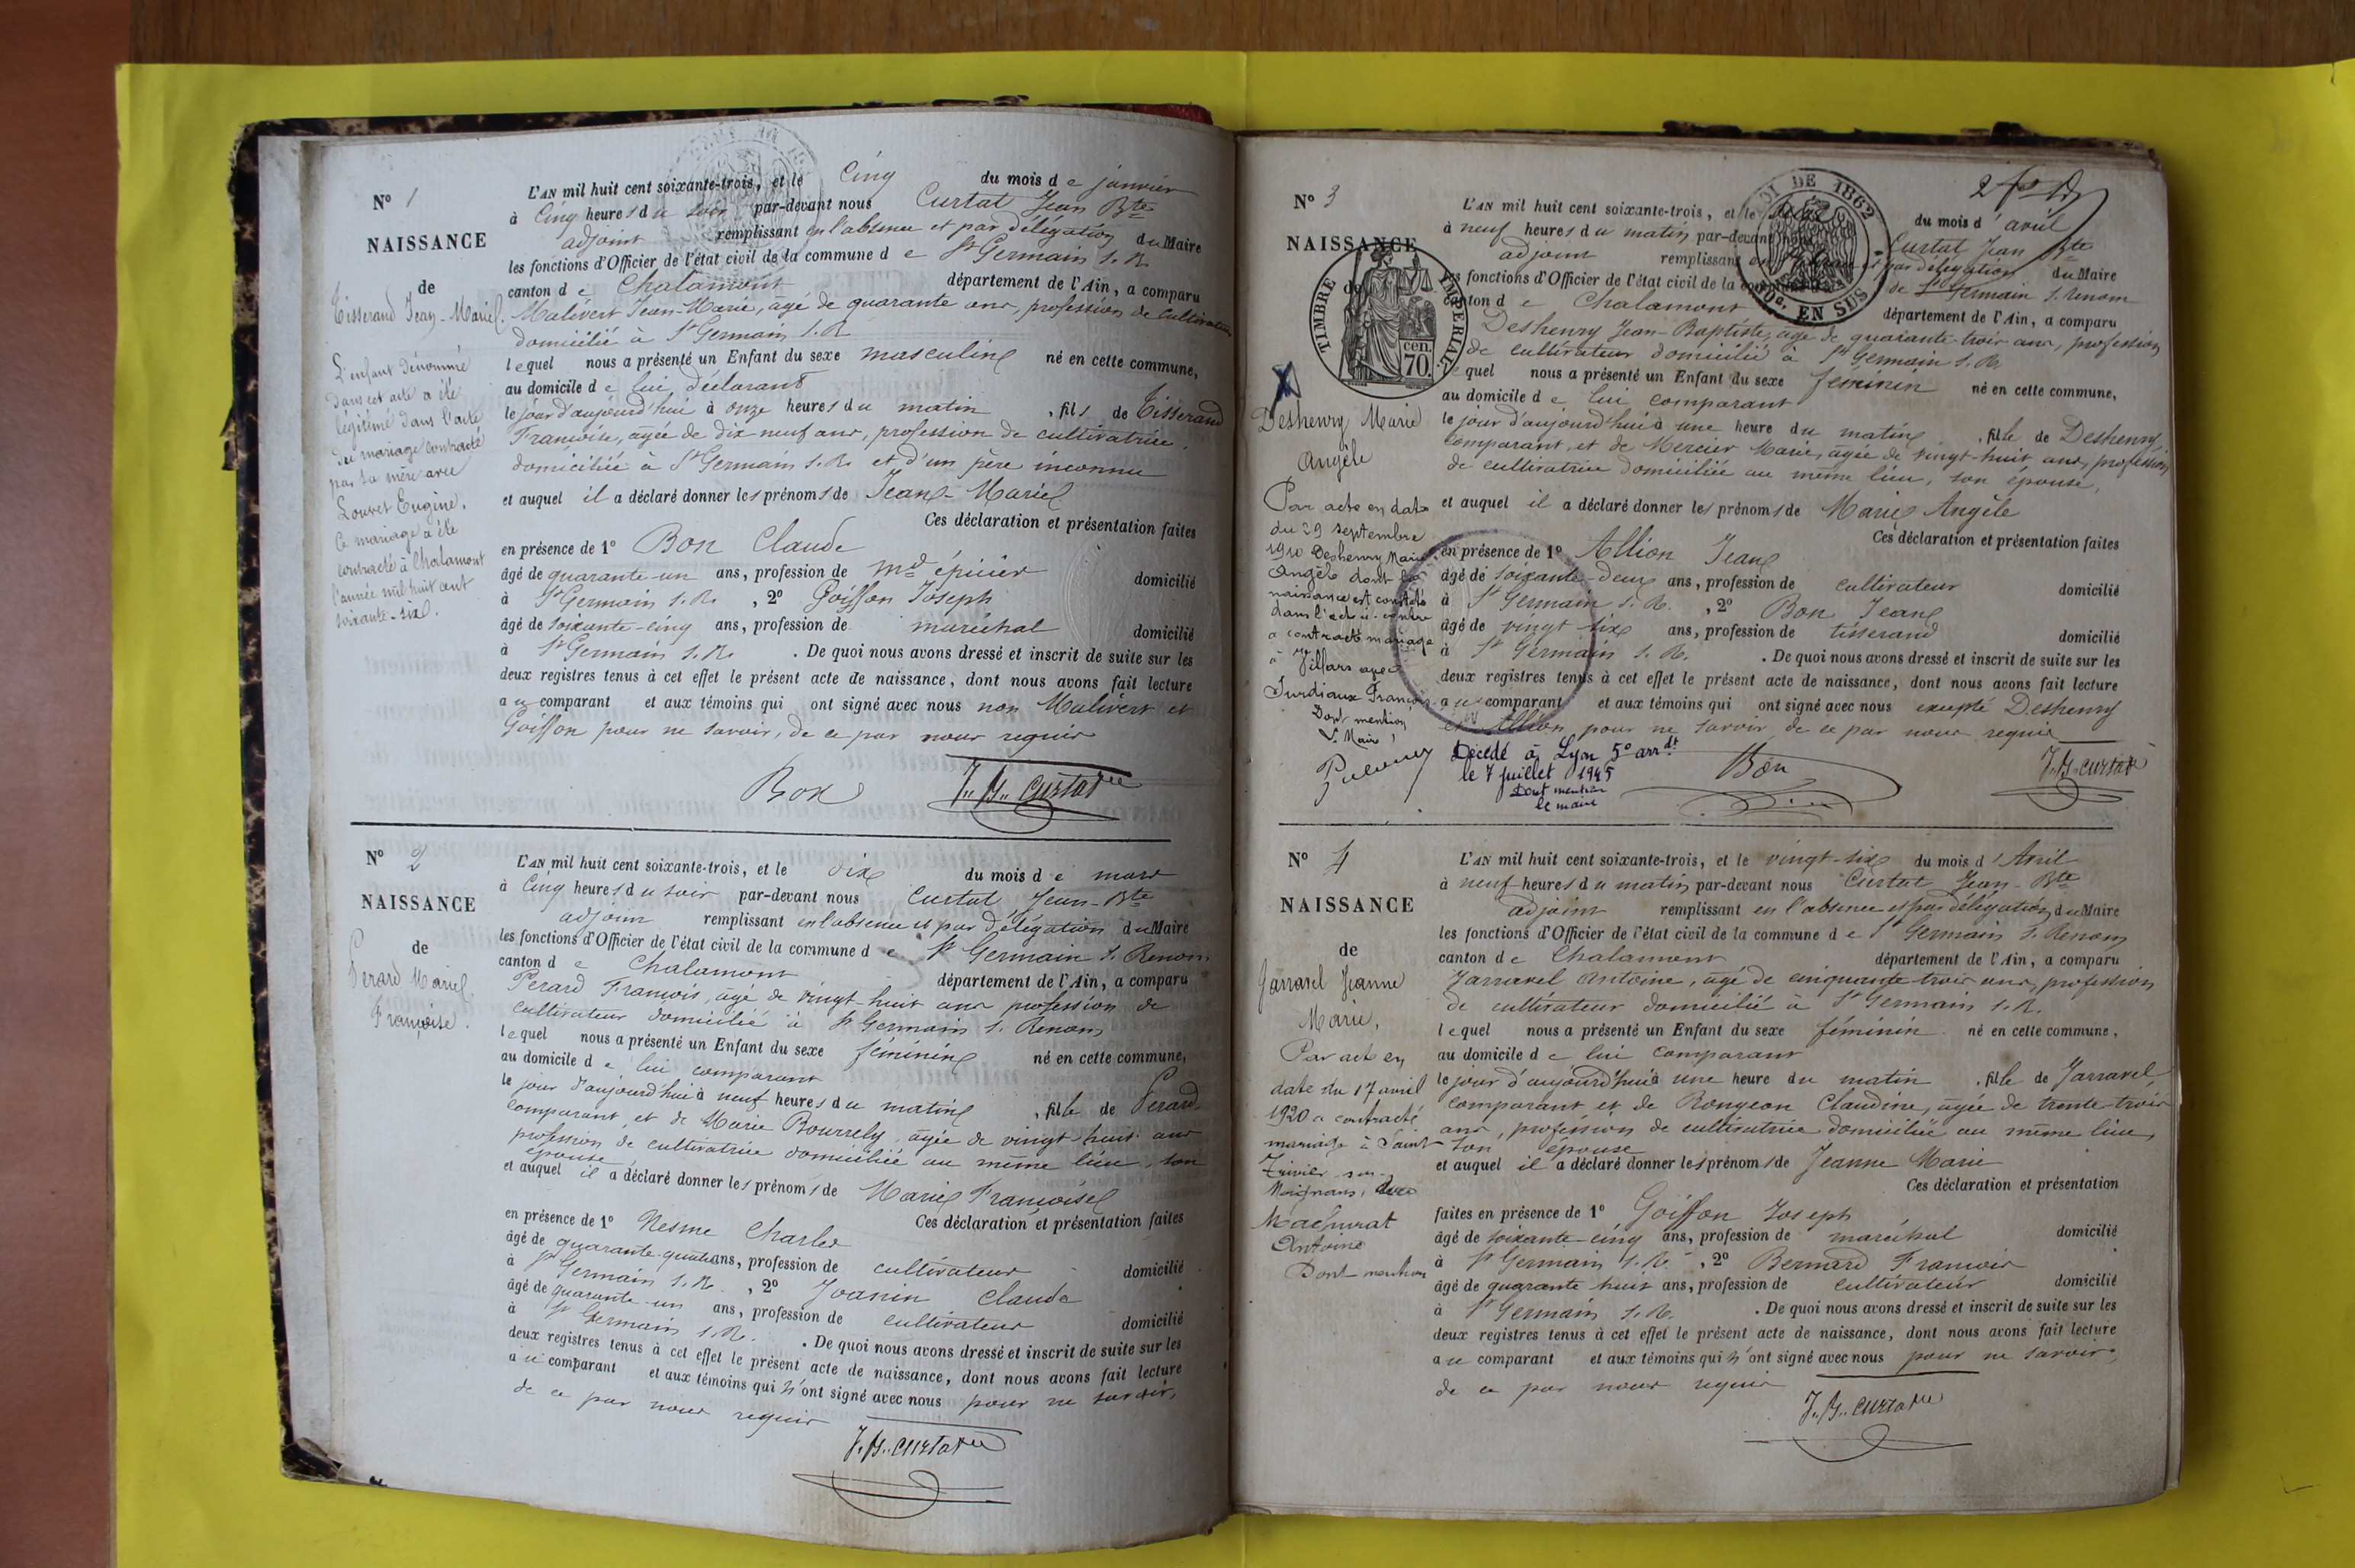 N° 1
NAISSANCE
de
Tisserand Jean-Marie
L'enfant dénommé
dans cet acte a été
légitimé dans l'acte
de mariage contracté
par sa mère avec
Louvet Eugène.
Ce mariage a été
contracté à Chalamont
l'année mil huit cent
soixante-six.
L'AN mil huit cent soixante-trois, et le Cinq du mois de janvier
à Cinq heures du soir par-devant nous Curtat Jean Bte
adjoint remplissant en l'absence et par délégation du Maire
les fonctions d'Officier de l'état civil de la commune de St Germain s. R.
canton de Chalamont département de l'Ain, a comparu
Malivert Jean-Marie, âgé de quarante ans, profession de cultivateur
domicilié à St Germain S. R.
lequel nous a présenté un Enfant du sexe masculin né en cette commune,
au domicile de lui déclarant
le jour d'aujourd'hui à onze heures du matin, fils de Tisserand
Françoise, âgée de dix neuf ans, profession de cultivatrice,
domiciliée à St Germain s. R. et d'un père inconnu
et auquel il a déclaré donner les prénoms de Jean-Marie
Ces déclaration et présentation faites
en présence de 1° Bon Claude
âgé de quarante-un ans, profession de md épicier domicilié
à St Germain s. R. , 2° Goiffon Joseph
âgé de soixante-cinq ans, profession de maréchal domicilié
à St Germain s. R. . De quoi nous avons dressé et inscrit de suite sur les
deux registres tenus à cet effet le présent acte de naissance, dont nous avons fait lecture
au comparant et aux témoins qui ont signé avec nous non Malivert et
Goiffon pour ne savoir, de ce par nous requis
Bon J. B. Curtat
N° 2
NAISSANCE
de
Perard Marie
Françoise.
L'AN mil huit cent soixante-trois, et le six du mois de mars
à Cinq heures du soir par-devant nous Curtat Jean-Bte
adjoint remplissant en l'absence et par délégation du Maire
les fonctions d'Officier de l'état civil de la commune de St Germain s. Renom
canton de Chalamont département de l'Ain, a comparu
Perard François, âgé de vingt-huit ans profession de
cultivateur domicilié à St Germain s. Renom
lequel nous a présenté un Enfant du sexe féminin né en cette commune,
au domicile de lui comparant
le jour d'aujourd'hui à neuf heures du matin, fille de Perard
comparant, et de Marie Bourrely, âgée de vingt huit ans
profession de cultivatrice domiciliée au même lieu, son
épouse
et auquel il a déclaré donner les prénoms de Marie Françoise
Ces déclaration et présentation faites
en présence de 1° Nesme Charles
âgé de quarante-quatre ans, profession de cultivateur domicilié
à St Germain s. R. , 2° Joanin Claude
âgé de quarante-un ans, profession de cultivateur domicilié
à St Germain s. R. . De quoi nous avons dressé et inscrit de suite sur les
deux registres tenus à cet effet le présent acte de naissance, dont nous avons fait lecture
au comparant et aux témoins qui n'ont signé avec nous pour ne savoir,
de ce par nous requis
J. B. Curtat
N° 3
NAISSANCE
de
TIMBRE IMPERIAL
70 cen.
LOI DE 1862
EN SUS
Deshenry Marie
Angèle
Par acte en date
du 29 septembre
1910 Deshenry Marie
Angèle dont la
naissance est constatée
dans l'acte ci-contre
a contracté mariage
à Villars avec
Jurdiaux François
Dont mention
Le Maire
L'AN mil huit cent soixante-trois, et le du mois d'avril
à neuf heures du matin par-devant nous Curtat Jean Bte
adjoint remplissant en l'absence et par délégation du Maire
les fonctions d'Officier de l'état civil de la commune de St Germain s. Renom
canton de Chalamont département de l'Ain, a comparu
Deshenry Jean-Baptiste, âgé de quarante-trois ans, profession
de cultivateur domicilié à St Germain s. R.
lequel nous a présenté un Enfant du sexe féminin né en cette commune,
au domicile de lui comparant
le jour d'aujourd'hui à une heure du matin, fille de Deshenry,
comparant, et de Mercier Marie, âgée de vingt-huit ans, profession
de cultivatrice domiciliée au même lieu, son épouse,
et auquel il a déclaré donner les prénoms de Marie Angèle
Ces déclaration et présentation faites
en présence de 1° Allion Jean
âgé de soixante-deux ans, profession de cultivateur domicilié
à St Germain s. R. , 2° Bon Jean
âgé de vingt six ans, profession de tisserand domicilié
à St Germain s. R. . De quoi nous avons dressé et inscrit de suite sur les
deux registres tenus à cet effet le présent acte de naissance, dont nous avons fait lecture
au comparant et aux témoins qui ont signé avec nous excepté Deshenry
et Allion pour ne savoir de ce par nous requis
Décédé à Lyon 5° arrdt
le 7 juillet 1945
Dont mention
Le maire
Bon J. B. Curtat
N° 4
NAISSANCE
de
Jarravel Jeanne
Marie,
Par acte en
date du 17 avril
1920 a contracté
mariage à Saint
Trivier sur
Moignans, avec
Machurat
Antoine
Dont mention
L'AN mil huit cent soixante-trois, et le vingt-six du mois d'Avril
à neuf heures du matin par-devant nous Curtat Jean-Bte
adjoint remplissant en l'absence et par délégation du Maire
les fonctions d'Officier de l'état civil de la commune de St Germain s. Renom
canton de Chalamont département de l'Ain, a comparu
Jarravel Antoine, âgé de cinquante-trois ans, profession
de cultivateur domicilié à St Germain s. R.
lequel nous a présenté un Enfant du sexe féminin né en cette commune,
au domicile de lui comparant
le jour d'aujourd'hui à une heure du matin, fille de Jarravel,
comparant et de Rongeon Claudine, âgée de trente-trois
ans, profession de cultivatrice domiciliée au même lieu,
son épouse
et auquel il a déclaré donner les prénoms de Jeanne Marie
Ces déclaration et présentation
faites en présence de 1° Goiffon Joseph
âgé de soixante-cinq ans, profession de maréchal domicilié
à St Germain s. R. , 2° Bernard François
âgé de quarante huit ans, profession de cultivateur domicilié
à St Germain s. R. . De quoi nous avons dressé et inscrit de suite sur les
deux registres tenus à cet effet le présent acte de naissance, dont nous avons fait lecture
au comparant et aux témoins qui n'ont signé avec nous pour ne savoir,
de ce par nous requis
J. B. Curtat